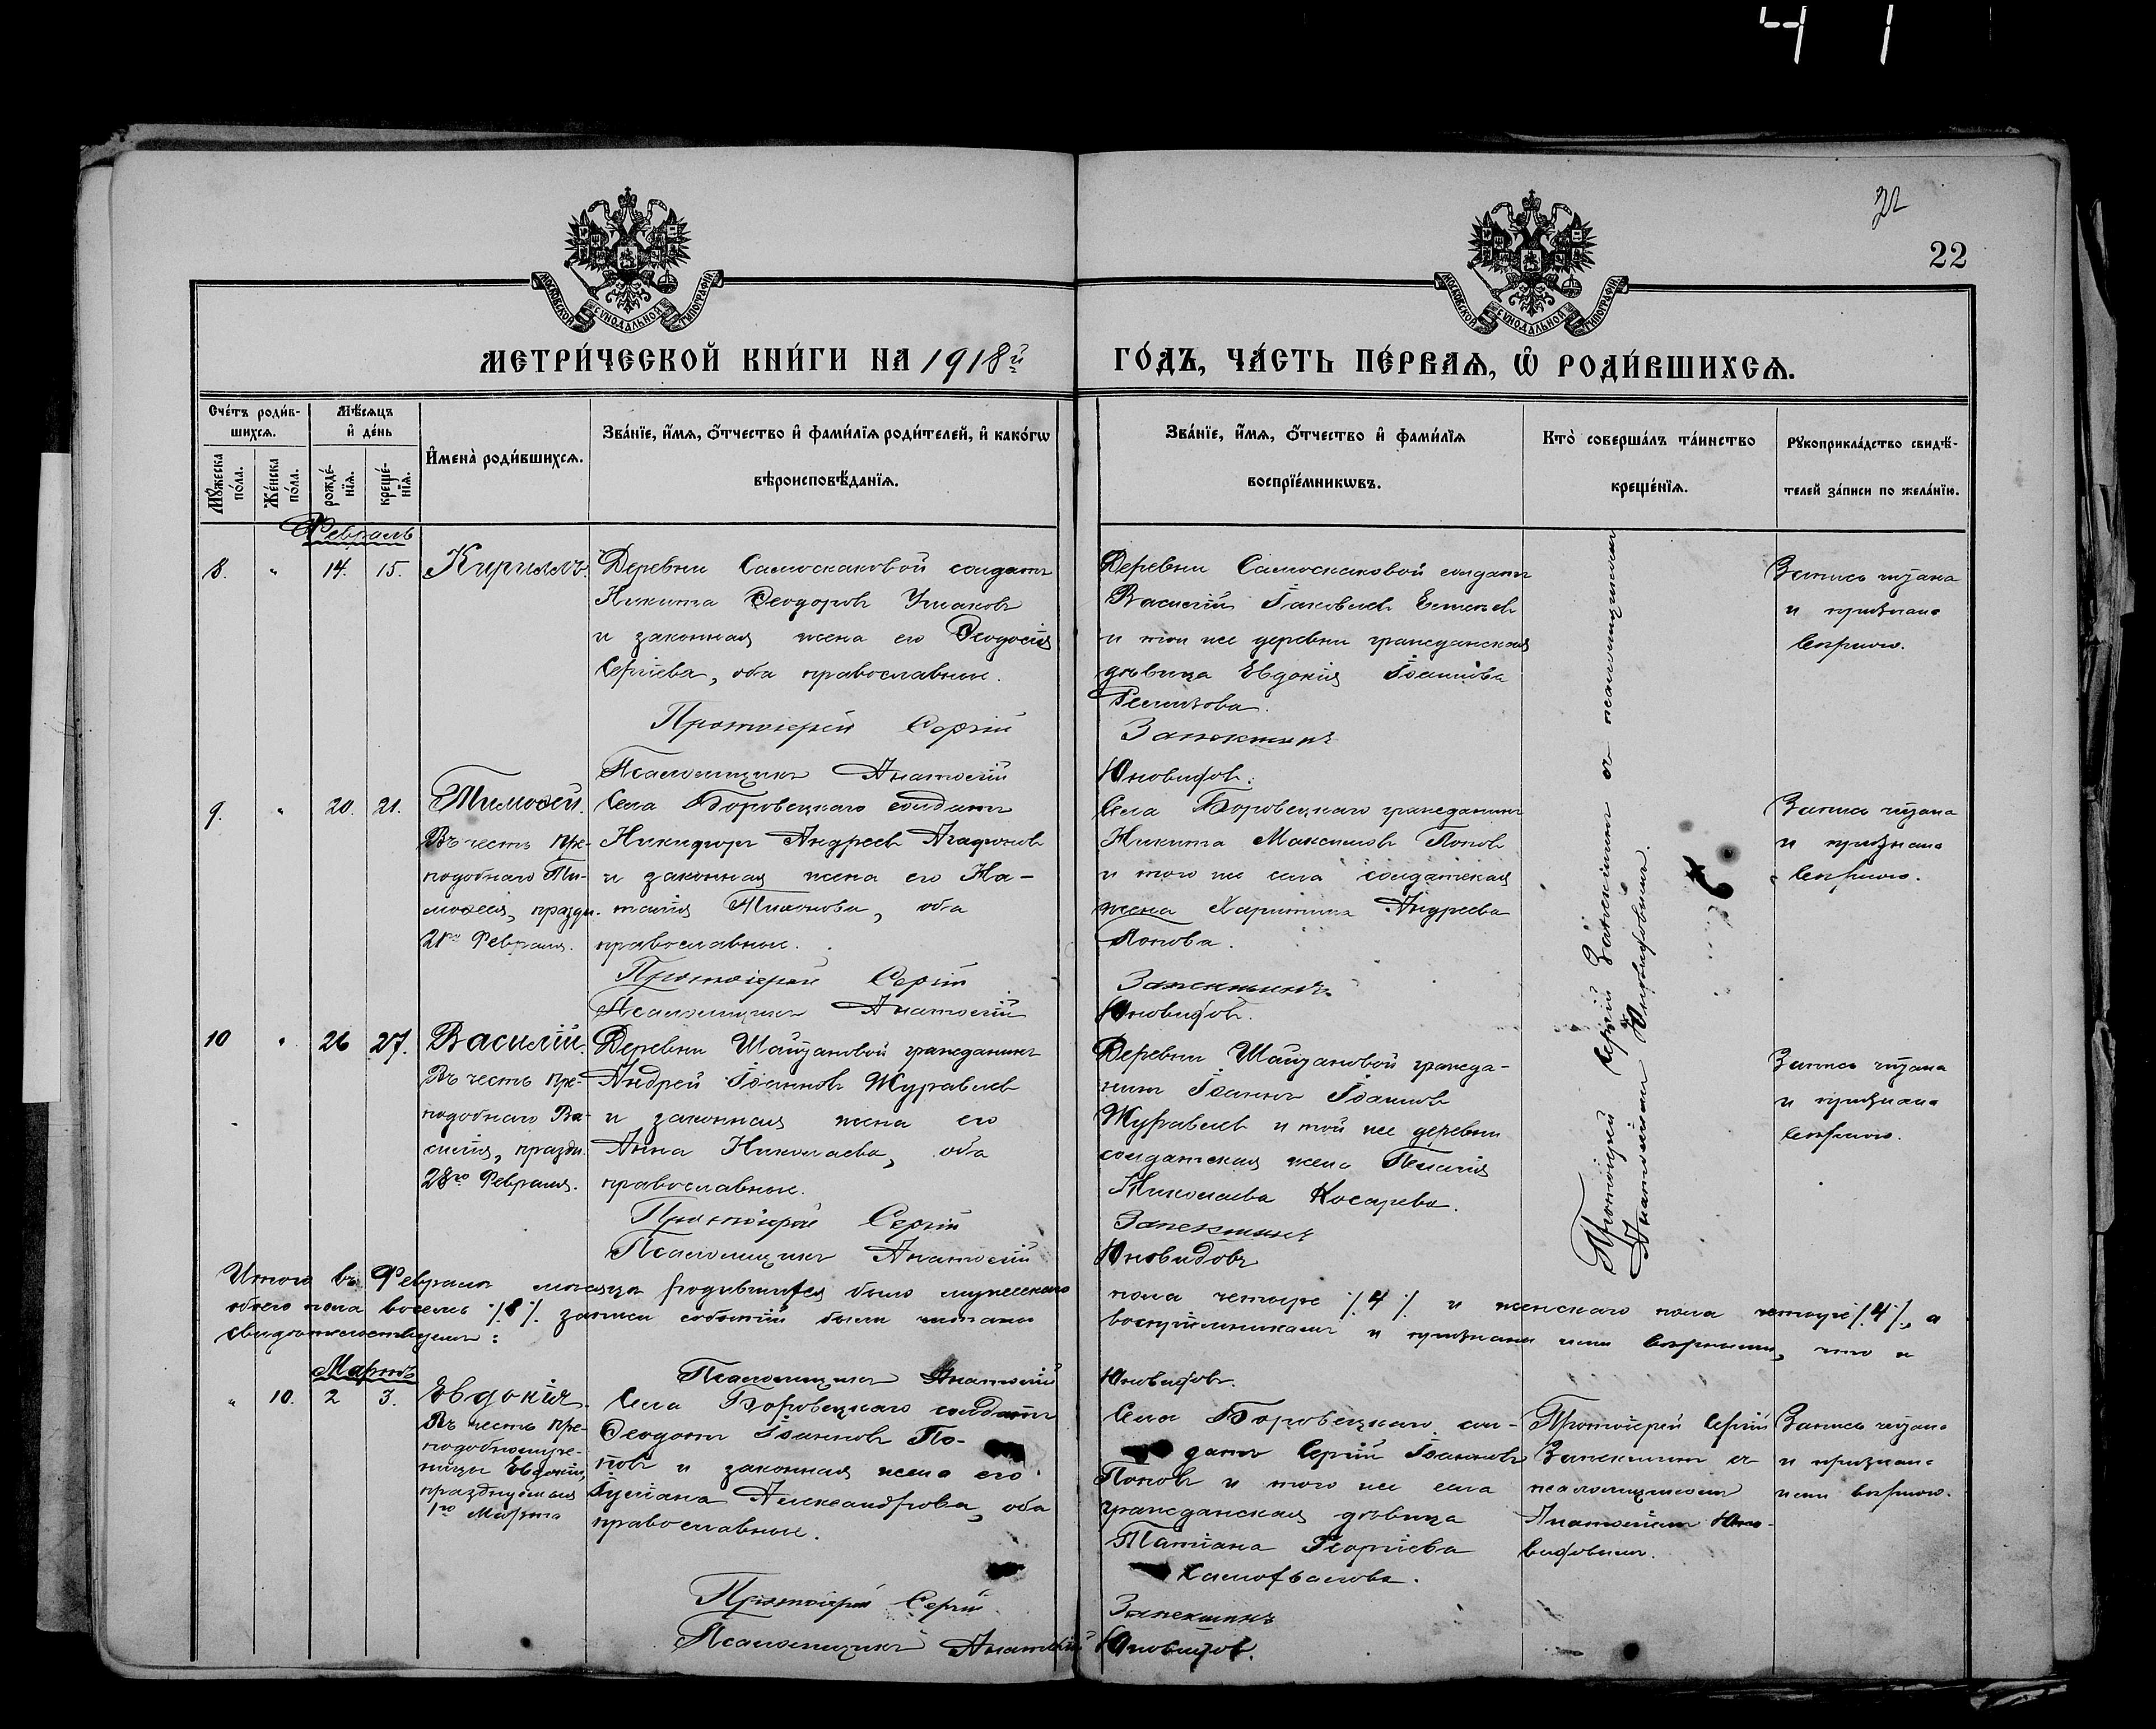 4 1
22
22
МОСКОВСКОЙ СѴНОДАЛЬНОЙ ТИПОГРАФІИ
МОСКОВСКОЙ СѴНОДАЛЬНОЙ ТИПОГРАФІИ
МЕТРИ́ЧЕСКОЙ КНИ́ГИ НА 1918й
ГО́ДЪ, ЧА́СТЬ ПЕ́РВАѦ, Ѡ҆ РОДИ́ВШИХСѦ.
Сче́тъ роди́в-
шихсѧ.
Мѣ́сѧцъ
и҆ де́нь
Мꙋ́жеска
по́ла.
Же́нска
по́ла.
рожде́-
нїѧ.
креще́-
нїѧ.
И҆мена̀ роди́вшихсѧ.
Зва́нїе, и҆́мѧ, о҆́тчество и҆ фами́лїѧ роди́телей, и҆ како́гѡ
вѣроисповѣ́данїѧ.
Зва́нїе, и҆́мѧ, о҆́тчество и҆ фами́лїѧ
воспрїе́мникѡвъ.
Кто̀ соверша́лъ та́инство
креще́нїѧ.
Рꙋкоприкла́дство свидѣ́-
телей за́писи по жела́нїю.
Февраль
8. " 14. 15. Кириллъ.
Деревни Самоскаковой солдатъ
Никита Ѳеодоровъ Ушаковъ
и законная жена его Ѳеодосія
Сергіева, оба православные.
Протоіерей Сергій
Псаломщикъ Анатолій
Деревни Самоскаковой солдатъ
Василій Іаковлевъ
и той же деревни гражданская
дѣвица Евдокія Іоаннова
Ремизова.
Запекинъ
Юновидовъ.
Запись читана
и признана
вѣрною.
9. " 20. 21. Тимоѳей.
Въ честь пре-
подобнаго Ти-
моѳея, праздн.
21го Февраля.
Села Боровецкаго солдатъ
Никифоръ Андреевъ Агафоновъ
и законная жена его На-
талія Тихонова, оба
православные.
Протоіерей Сергій
Псаломщикъ Анатолій
Села Боровецкаго гражданинъ
Никита Максимовъ Поповъ
и того же села солдатская
жена Харитина Андреева
Попова.
Запекинъ
Юновидовъ.
Запись читана
и признана
вѣрною.
10 " 26 27. Василій.
Въ честь пре-
подобнаго Ва-
силія, праздн.
28го Февраля.
Деревни Шайтановой гражданинъ
Андрей Іоанновъ Журавлевъ
и законная жена его
Анна Николаева, оба
православные.
Протоіерей Сергій
Псаломщикъ Анатолій
Деревни Шайтановой гражда-
нинъ Іоаннъ Іоанновъ
Журавлевъ и той же деревни
солдатская жена Пелагія
Николаева Косарева.
Запекинъ
Юновидовъ
Протоіерей Сергій Запекинъ съ псаломщикомъ
Анатоліемъ Юновидовымъ.
Запись читана
и признана
вѣрною.
Итого въ Февралѣ мѣсяцѣ родившихся было мужескаго
пола четыре /.4/. и женскаго пола четыре /.4/., а
обоего пола восемь /.8/. записи событій были читаны
воспріемникамъ и признаны ими вѣрными, что и
свидѣтельствуемъ:
Псаломщикъ Анатолій
Юновидовъ.
Мартъ
" 10. 2 3. Евдокія.
Въ честь пре-
подобномуче-
ницы Евдокіи,
празднуемая
1го Марта
Села Боровецкаго солдатъ
Ѳеодотъ Іоанновъ По-
повъ и законная жена его
Іуліана Александрова, оба
православные.
Протоіерей Сергій
Псаломщикъ Анатолій
Села Боровецкаго сол-
датъ Сергій Іоанновъ
Поповъ и того же села
гражданская дѣвица
Татіана Георгіева
Самофалова.
Запекинъ
Юновидовъ.
Протоіерей Сергій
Запекинъ съ
псаломщикомъ
Анатоліемъ Юно-
видовымъ.
Запись читана
и признана
ими вѣрною.